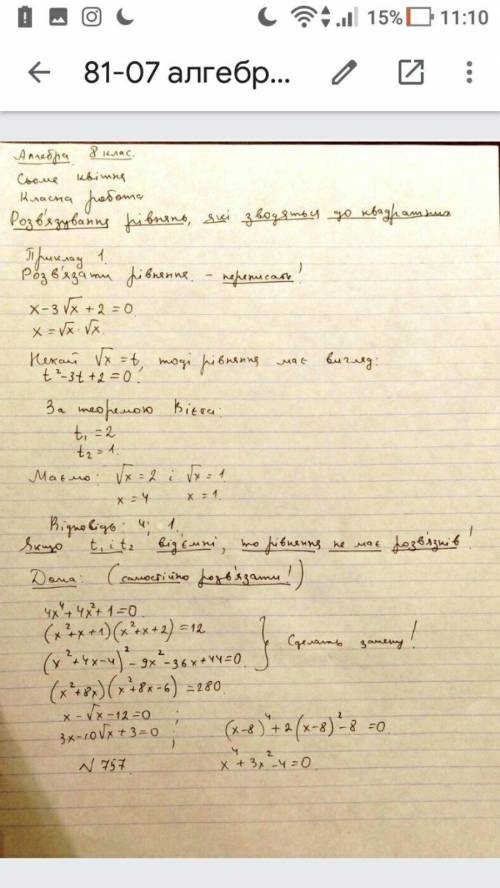 15% 11:10
81-07 алгебр...
Алгебра 8 клас.
Сьоме квітня
Класна робота
Розв'язування рівнянь, які зводяться до квадратних
Приклад 1.
Розв'язати рівняння. - переписать!
x-3√x+2=0
x=√x·√x.
Нехай √x=t, тоді рівняння має вигляд:
t²-3t+2=0.
За теоремою Вієта:
t₁=2
t₂=1.
Маємо: √x=2 і √x=1.
x=4 x=1.
Відповідь: 4; 1.
Якщо t₁ і t₂ від'ємні, то рівняння не має розв'язків!
Дома: (самостійно розв'язати!)
4x⁴+4x²+1=0.
(x²+x+1)(x²+x+2)=12
(x²+4x-4)²-9x²-36x+44=0. } Сделать замену!
(x²+8x)(x²+8x-6)=280.
x-√x-12=0 ;
3x-10√x+3=0 ; (x-8)⁴+2(x-8)²-8=0
N 757 x⁴+3x²-4=0